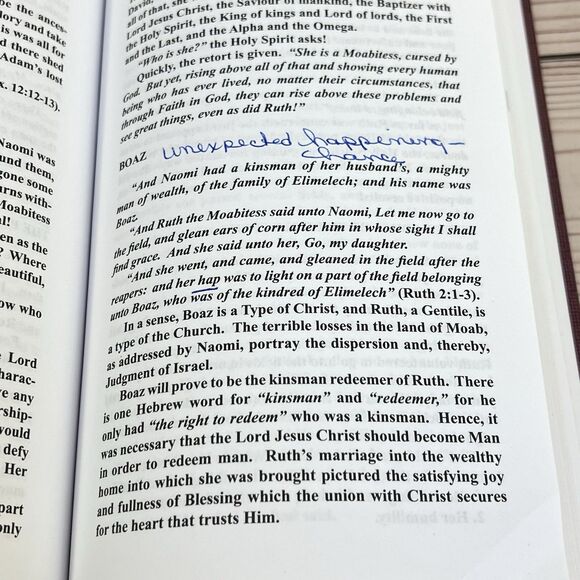 be the ances-
lory and take
is was all for
d there shed
Adam's lost
x. 12:12-13).
Naomi was
und them,
gone some
urns with-
Moabitess
al!
en as the
? Where
eautiful,
ow who
e Lord
harac-
ve any
rship-
would
defy
Her
part
only
David.
all of that, she
Lord Jesus Christ, the Saviour of mankind, the Baptizer with
the Holy Spirit, the King of kings and Lord of lords, the First
and the Last, and the Alpha and the Omega.
"Who is she?" the Holy Spirit asks!
Quickly, the retort is given. "She is a Moabitess, cursed by
God. But yet, rising above all of that and showing every human
being who has ever lived, no matter their circumstances, that
through Faith in God, they can rise above these problems and
see great things, even as did Ruth!"
unexpected happening -
chance
BOAZ
"And Naomi had a kinsman of her husband's, a mighty
man of wealth, of the family of Elimelech; and his name was
Boaz.
"And Ruth the Moabitess said unto Naomi, Let me now go to
the field, and glean ears of corn after him in whose sight I shall
find grace. And she said unto her, Go, my daughter.
"And she went, and came, and gleaned in the field after the
reapers: and her hap was to light on a part of the field belonging
unto Boaz, who was of the kindred of Elimelech" (Ruth 2:1-3).
In a sense, Boaz is a Type of Christ, and Ruth, a Gentile, is
a type of the Church. The terrible losses in the land of Moab,
as addressed by Naomi, portray the dispersion and, thereby,
Judgment of Israel.
Boaz will prove to be the kinsman redeemer of Ruth. There
is one Hebrew word for "kinsman" and "redeemer," for he
only had "the right to redeem" who was a kinsman. Hence, it
was necessary that the Lord Jesus Christ should become Man
in order to redeem man. Ruth's marriage into the wealthy
home into which she was brought pictured the satisfying joy
and fullness of Blessing which the union with Christ secures
for the heart that trusts Him.